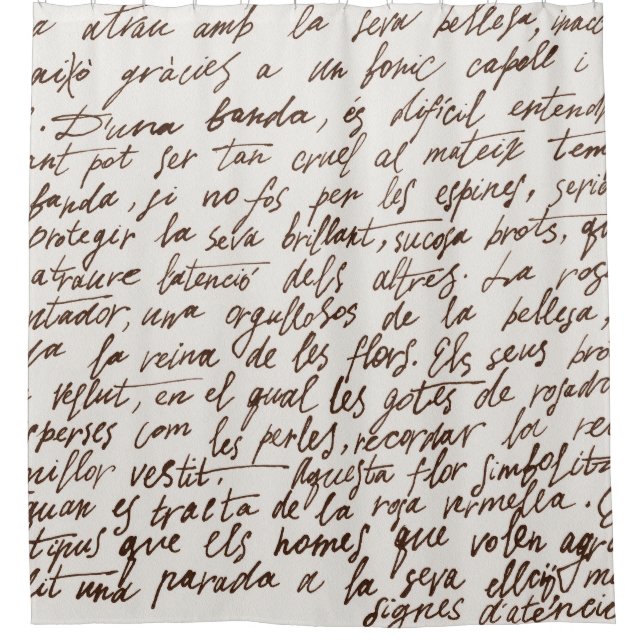 a atrau amb la seva bellesa, inacc
això gràcies a un fonic capoll i
. D'una banda, és difícil entendr
ant pot ser tan cruel al mateix tem
banda, si no fos per les espines, serió
protegir la seva brillant, sucosa brots, qu
atraure l'atenció dels altres. La rosa
ntador, una orgullosos de la bellesa,
la reina de les flors. Els seus bro
vellut, en el qual les gotes de rosado
sperses com les perles, recordar la rei
millor vestit. Aquesta flor simbolitza
quan es tracta de la rosa vermella.
tipus que els homes que volen agra
lit una parada a la seva elecció
signes d'atenció